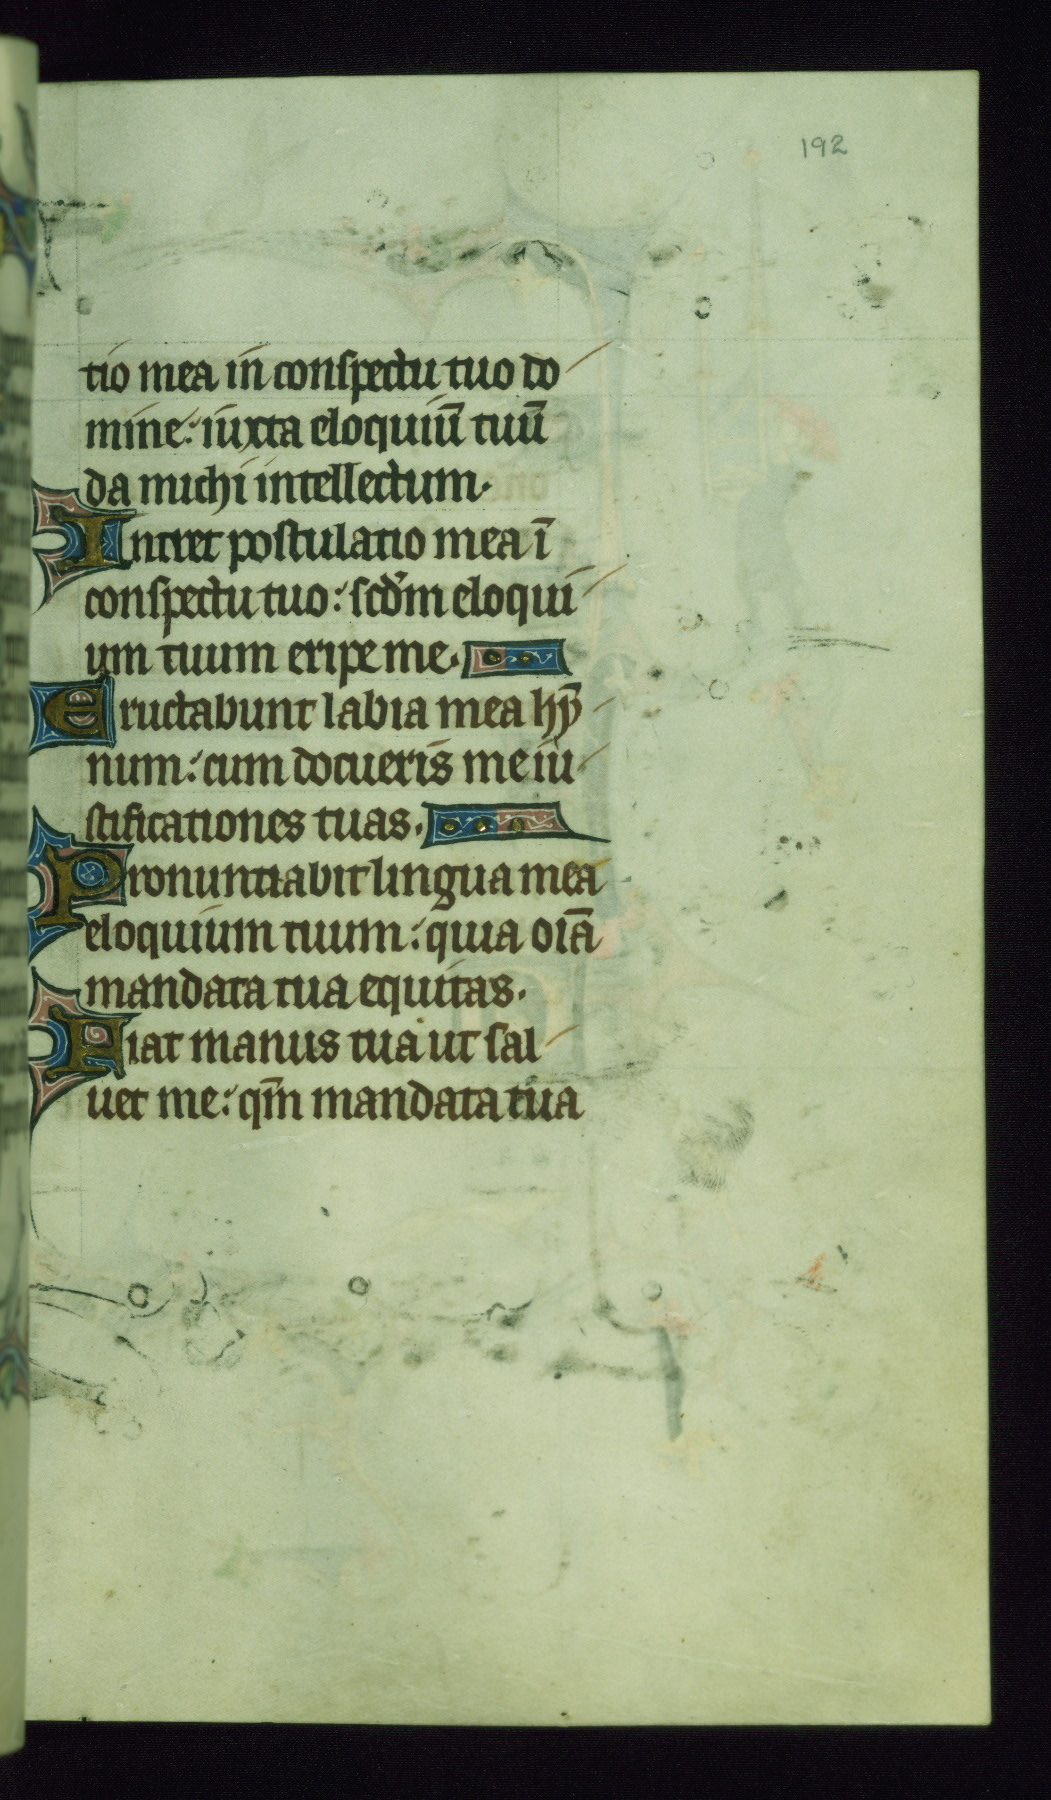 192
tio mea in conspectu tuo do
mine: iuxta eloquiū tuū
da michi intellectum.
Intret postulatio mea ī
conspectu tuo: scd̄m eloqui
um tuum eripe me.
Eructabunt labia mea hȳ
num: cum docueris me iu
stificationes tuas.
Pronuntiabit lingua mea
eloquium tuum: quia oīa
mandata tua equitas.
Fiat manus tua ut sal
uet me: qm̄ mandata tua